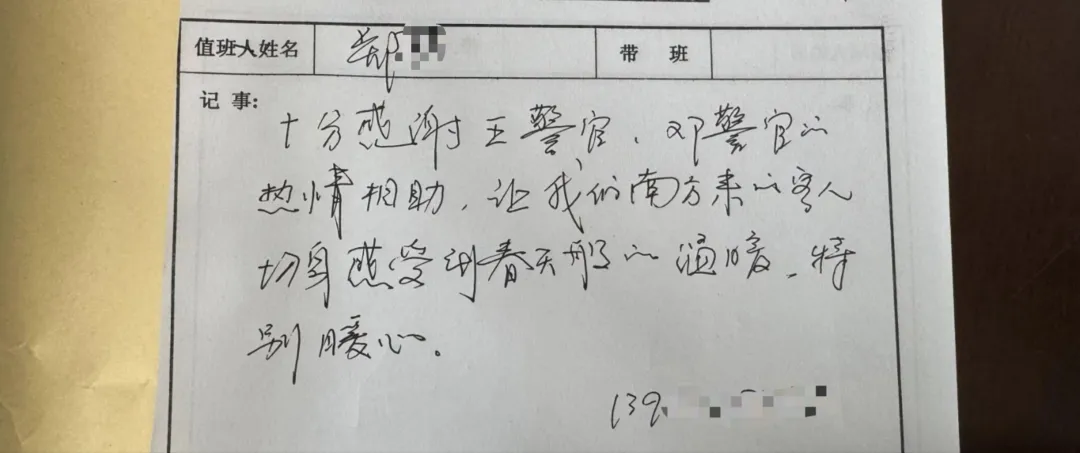 值班人姓名 郑 带 班
记 事:
十分感谢王警官、邓警官的
热情相助,让我们南方来的客人
切身感受到春天那的温暖,特
别暖心。
139